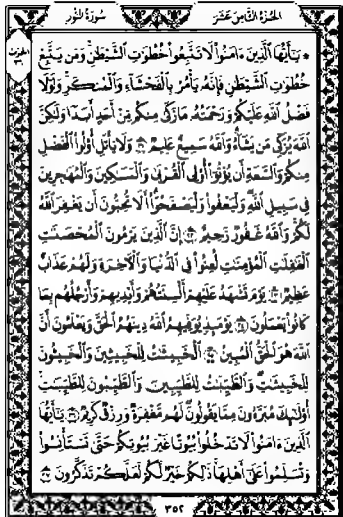 الجزء الثامن عشر
سورة النور
يَٰٓأَيُّهَا ٱلَّذِينَ ءَامَنُوا۟ لَا تَتَّبِعُوا۟ خُطُوَٰتِ ٱلشَّيْطَٰنِ وَمَن يَتَّبِعْ
خُطُوَٰتِ ٱلشَّيْطَٰنِ فَإِنَّهُۥ يَأْمُرُ بِٱلْفَحْشَآءِ وَٱلْمُنكَرِ وَلَوْلَا
فَضْلُ ٱللَّهِ عَلَيْكُمْ وَرَحْمَتُهُۥ مَا زَكَىٰ مِنكُم مِّنْ أَحَدٍ أَبَدًا وَلَٰكِنَّ
ٱللَّهَ يُزَكِّى مَن يَشَآءُ وَٱللَّهُ سَمِيعٌ عَلِيمٌ ٢١ وَلَا يَأْتَلِ أُو۟لُوا۟ ٱلْفَضْلِ
مِنكُمْ وَٱلسَّعَةِ أَن يُؤْتُوٓا۟ أُو۟لِى ٱلْقُرْبَىٰ وَٱلْمَسَٰكِينَ وَٱلْمُهَٰجِرِينَ
فِى سَبِيلِ ٱللَّهِ وَلْيَعْفُوا۟ وَلْيَصْفَحُوٓا۟ أَلَا تُحِبُّونَ أَن يَغْفِرَ ٱللَّهُ
لَكُمْ وَٱللَّهُ غَفُورٌ رَّحِيمٌ ٢٢ إِنَّ ٱلَّذِينَ يَرْمُونَ ٱلْمُحْصَنَٰتِ
ٱلْغَٰفِلَٰتِ ٱلْمُؤْمِنَٰتِ لُعِنُوا۟ فِى ٱلدُّنْيَا وَٱلْءَاخِرَةِ وَلَهُمْ عَذَابٌ
عَظِيمٌ ٢٣ يَوْمَ تَشْهَدُ عَلَيْهِمْ أَلْسِنَتُهُمْ وَأَيْدِيهِمْ وَأَرْجُلُهُم بِمَا
كَانُوا۟ يَعْمَلُونَ ٢٤ يَوْمَئِذٍ يُوَفِّيهِمُ ٱللَّهُ دِينَهُمُ ٱلْحَقَّ وَيَعْلَمُونَ أَنَّ
ٱللَّهَ هُوَ ٱلْحَقُّ ٱلْمُبِينُ ٢٥ ٱلْخَبِيثَٰتُ لِلْخَبِيثِينَ وَٱلْخَبِيثُونَ
لِلْخَبِيثَٰتِ وَٱلطَّيِّبَٰتُ لِلطَّيِّبِينَ وَٱلطَّيِّبُونَ لِلطَّيِّبَٰتِ
أُو۟لَٰٓئِكَ مُبَرَّءُونَ مِمَّا يَقُولُونَ لَهُم مَّغْفِرَةٌ وَرِزْقٌ كَرِيمٌ ٢٦ يَٰٓأَيُّهَا
ٱلَّذِينَ ءَامَنُوا۟ لَا تَدْخُلُوا۟ بُيُوتًا غَيْرَ بُيُوتِكُمْ حَتَّىٰ تَسْتَأْنِسُوا۟
وَتُسَلِّمُوا۟ عَلَىٰٓ أَهْلِهَا ذَٰلِكُمْ خَيْرٌ لَّكُمْ لَعَلَّكُمْ تَذَكَّرُونَ ٢٧
٣٥٢